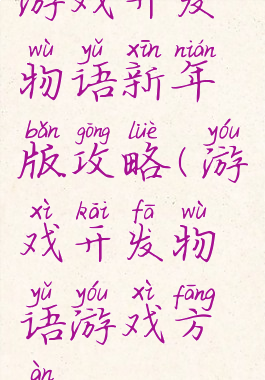 游戏开发
wù yǔ xīn nián
物语新年
bǎn gōng lüè yóu
版攻略(游
xì kāi fā wù
戏开发物
yǔ yóu xì fāng
语游戏方
àn